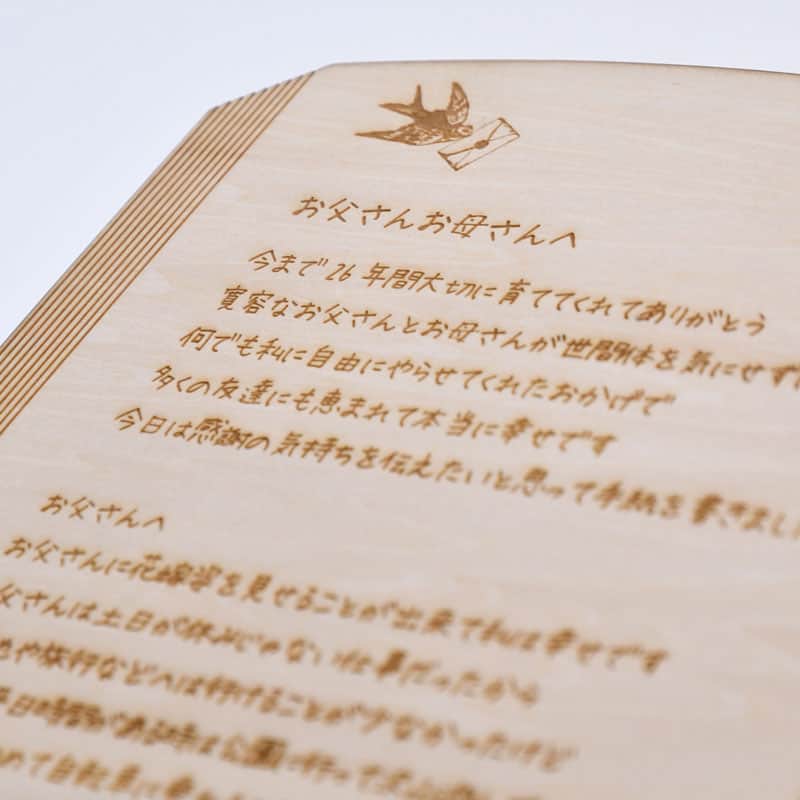 お父さんお母さんへ
今まで26年間大切に育ててくれてありがとう
寛容なお父さんとお母さんが世間体を気にせず
何でも私に自由にやらせてくれたおかげで
多くの友達にも恵まれて本当に幸せです
今日は感謝の気持ちを伝えたいと思って手紙を書きまし
お父さんへ
お父さんに花嫁姿を見せることが出来て私は幸せです
父さんは土日が休みじゃない仕事だったから
や旅行などへは行けることが少なかったけど
平日時間がある時は公園に行って
めて自転車に